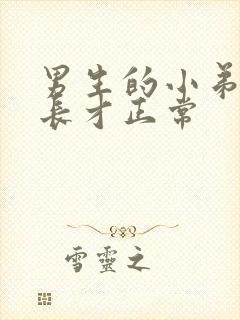 男生的小弟
长才正常
雪靈之